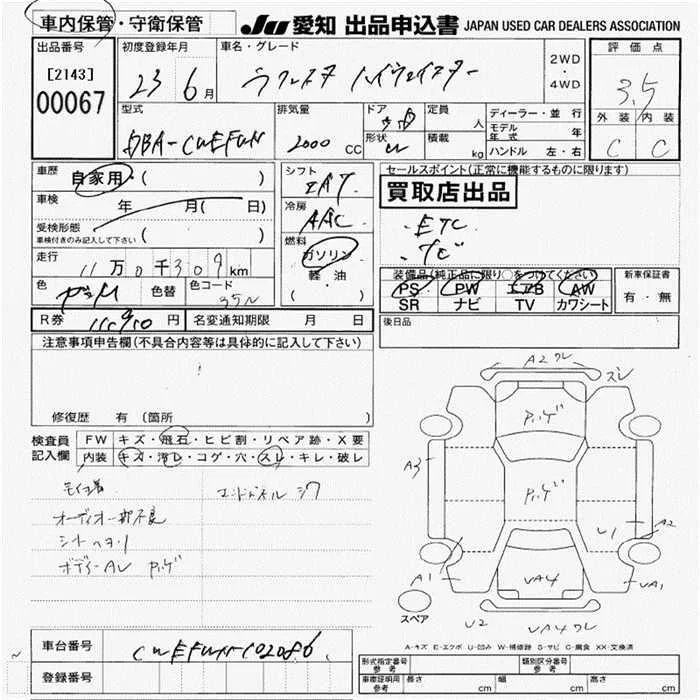 車内保管・守衛保管 JU 愛知 出品申込書 JAPAN USED CAR DEALERS ASSOCIATION
出品番号 初度登録年月 車名・グレード 評価点
[2143] 23 6月 ラフェスタ ハイウェイスター 2WD・4WD 3.5
00067
型式 排気量 ドア 定員 ディーラー・並行 外装 内装
DBA-CWEFWN 2000 CC 形状 人 モデル年式 年 C C
積載 kg ハンドル 左・右
車歴 自家用 ( ) シフト IAT セールスポイント(正常に機能するものに限ります)
車検 年 月( 日) 冷房 AAC 買取店出品
受検形態 ( ) ・ETC
車検付きのみ記入して下さい 燃料 ・TV
走行 11万0千309km ガソリン
軽油 装備品(純正品に限り○をつけてください) 新車保証書
色 色替 色コード ( ・ ) PS PW エアB AW 有・無
35N SR ナビ TV カワシート
R券 円 名変通知期限 月 日 後日品
注意事項申告欄(不具合内容等は具体的に記入して下さい)
修復歴 有(箇所 )
検査員記入欄 FW キズ・飛石・ヒビ割・リペア跡・X要
内装 キズ・汚レ・コゲ・穴・スレ・キレ・破レ
オーディオ一部不良
シートヘタリ
A2 ワレ
ズレ
A3
U1
A2
A1
UA4
UA1
スペア
U2
UA4 ワレ
A-キズ E-エクボ U-凹み W-補修跡 S-サビ C-腐食 XX-交換済
車台番号 CWEFWN-102086
登録番号
形式指定番号 参考 類別区分番号 参考
車庫証明用 参考 長さ cm 幅 cm 高さ cm